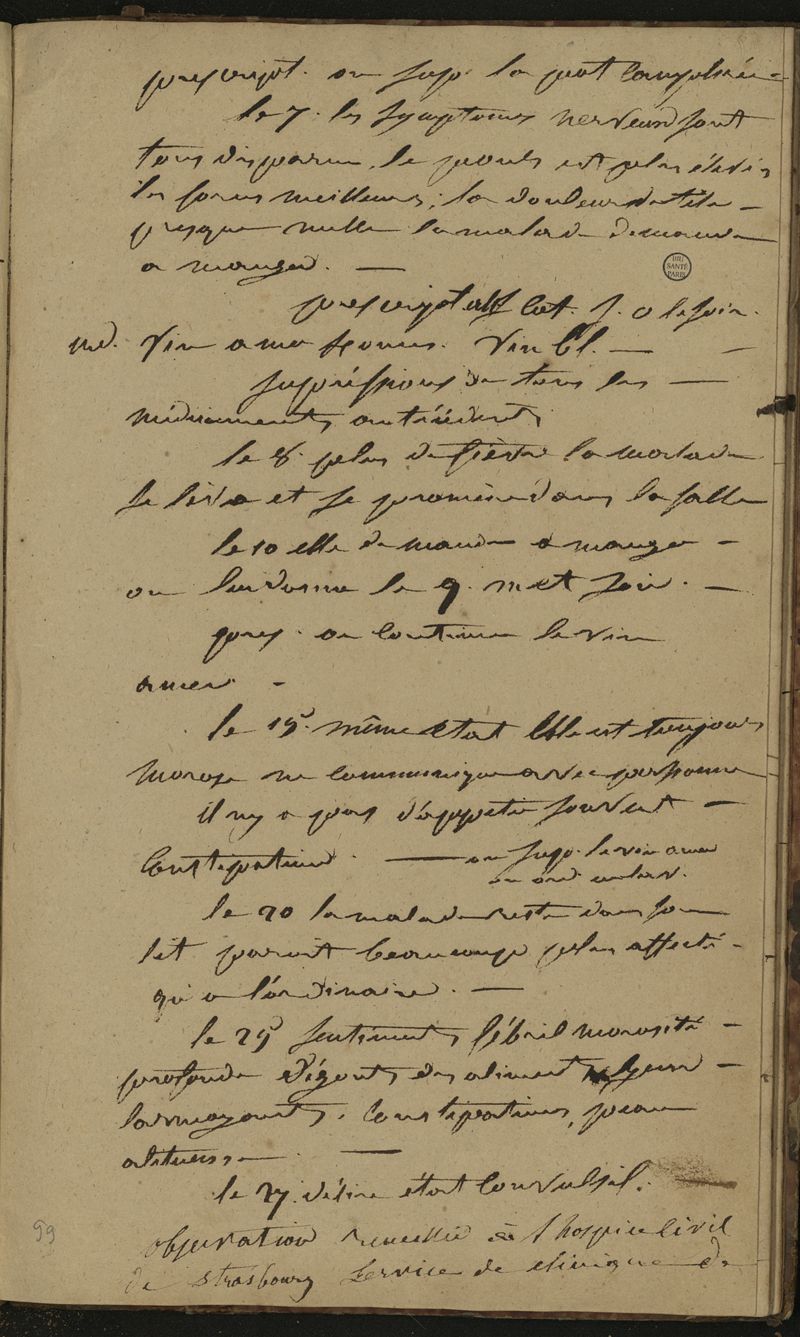 prescript. on supp. la pot camphrée
le 7. les symptomes nerveux sont
tous disparu, le pouls est plus élevé
les forces meilleures; la douleur de tête
presque nulle la malade demande
a manger. —
BIU
SANTÉ
PARIS
prescript le soir.
vin Vin bl. —
suppressions de tous les —
médicaments antécédents
le 8 plus de fièvre la malade
se lève et se promène dans la salle
le 10 elle demande a manger —
on lui donne le soir. —
pres. on continue le vin
amer —
le 15 même état Elle est toujours
morose ne communique avec personne
il ny a pas d'appetit souvent —
Constipation. — on supp. le vin amer
on ord. un lav.
le 20 la malade reste dans son
lit parait beaucoup plus affecté
qu'a l'ordinaire. —
le 25 sentiments fébril morosité —
profonde dégouts des aliments yeux —
larmoyants, Constipations, peau
—
le 27. délire état Convulsif.
99
observation recueillie à l'hospice Civil
de Strasbourg Service de clinique de